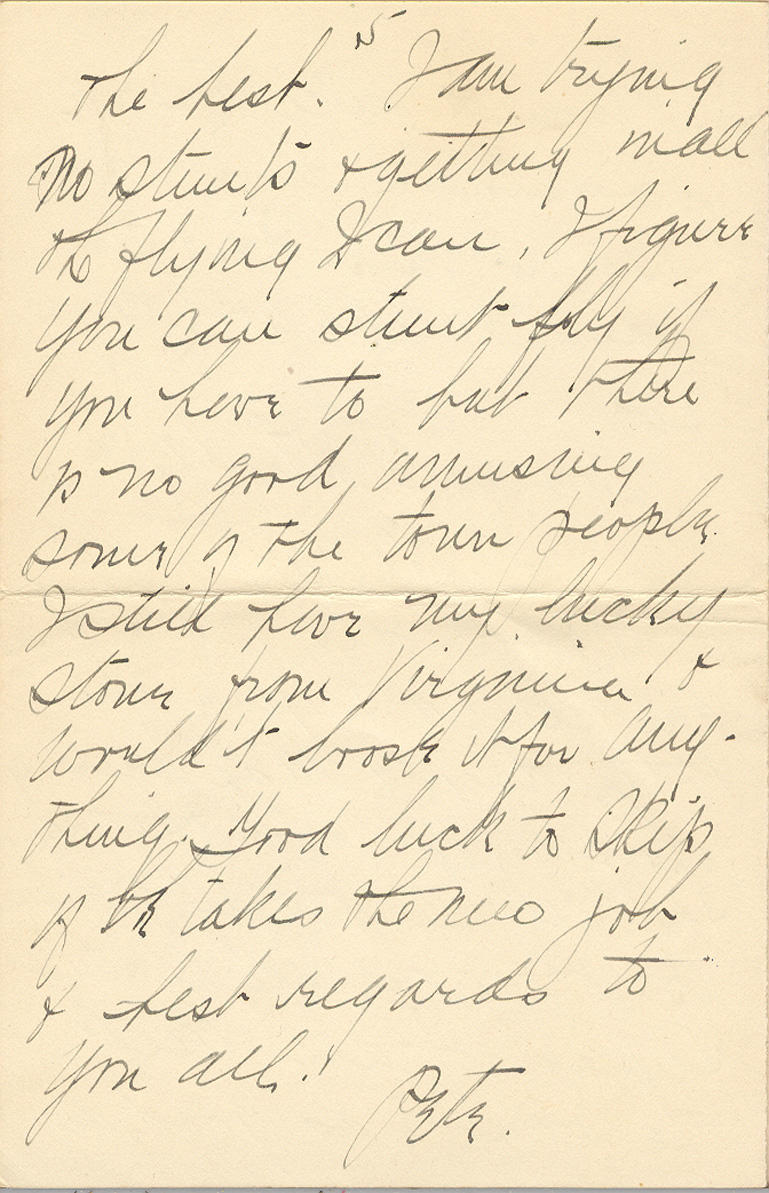 5
the best. I am trying
no stunts & getting in all
the flying I can, I figure
you can stunt fly if
you have to but there
is no good amusing
some of the town people.
I still have my lucky
stone from Virginia &
would't loose it for any-
thing. Good luck to Skip
if he takes the new job
& best regards to
you all.
Pete.